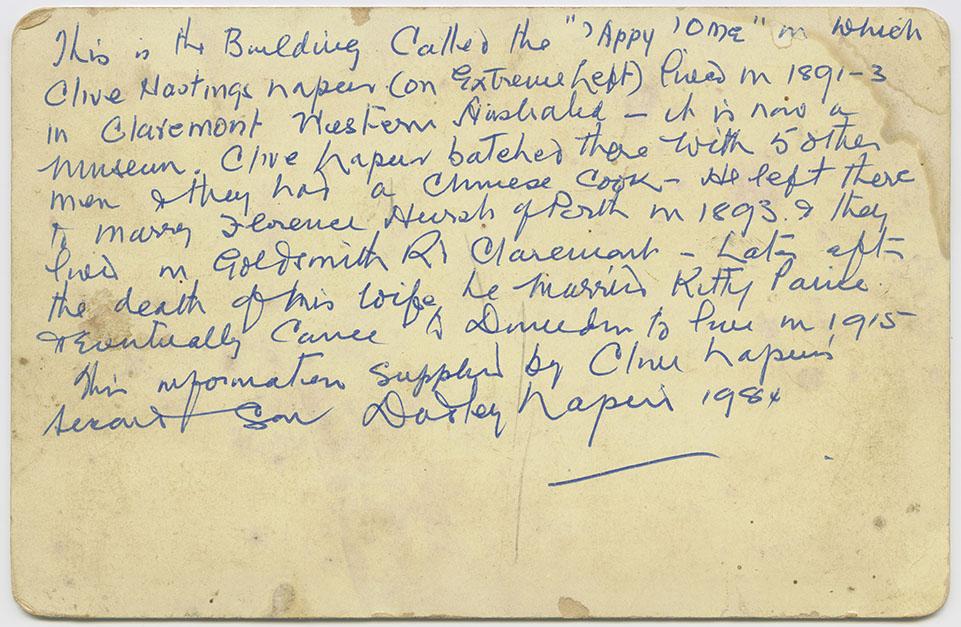 This is the Building Called the "'Appy 'Ome" in which
Clive Hastings Napier (on Extreme Left) lived in 1891-3
in Claremont Western Australia - it is now a
museum. Clive Napier batched there with 5 other
men & they had a Chinese Cook - He left there
to marry Florence Hursh of Perth in 1893. & they
lived in Goldsmith Rd Claremont - Later after
the death of his wife, he married Kitty
& Eventually Came to Dunedin to live in 1915
This information supplied by Clive Napier's
second Son Dudley Napier 1984